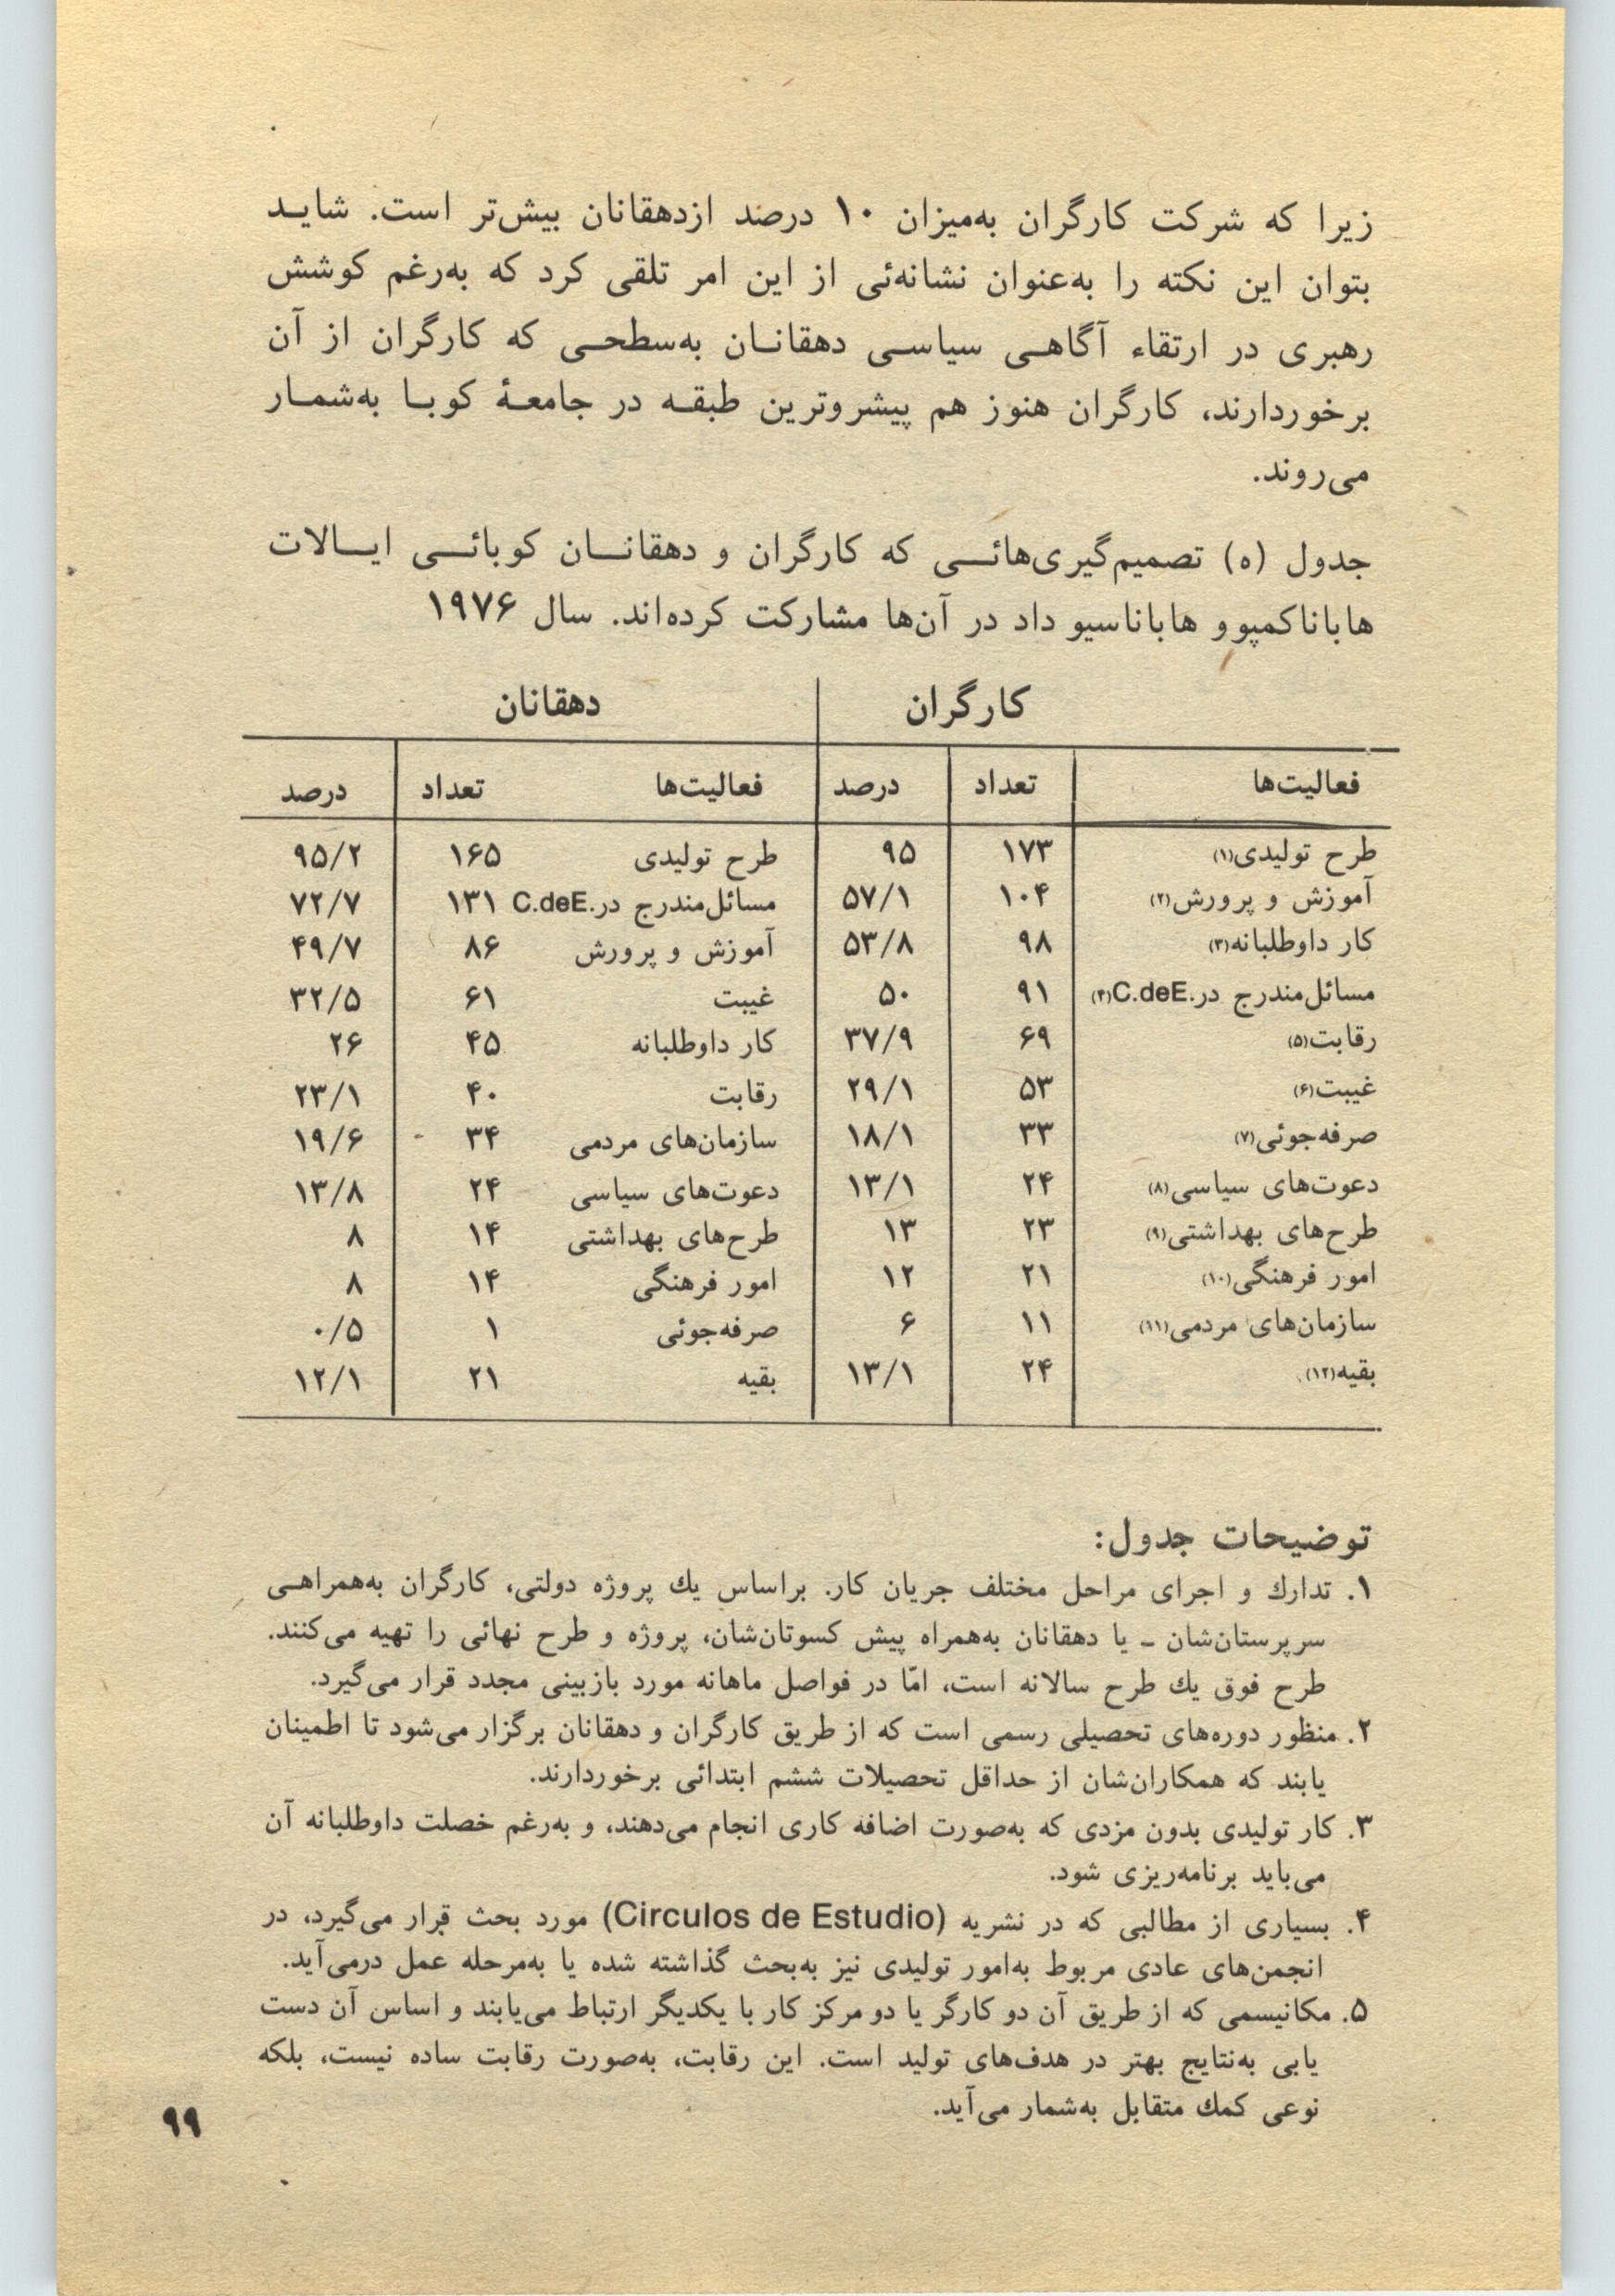 زیرا که شرکت کارگران به‌میزان ۱۰ درصد ازدهقانان بیش‌تر است. شایـد
بتوان این نکته را به‌عنوان نشانه‌ئی از این امر تلقی کرد که به‌رغم کوشش
رهبری در ارتقاء آگاهـی سیاسـی دهقانـان به‌سطحـی که کارگران از آن
برخوردارند، کارگران هنوز هم پیشروترین طبقـه در جامعـۀ کوبـا به‌شمـار
می‌روند.
جدول (۵) تصمیم‌گیری‌هائـی که کارگران و دهقانـان کوبائـی ایـالات
هاباناکمپوو هاباناسیو داد در آن‌ها مشارکت کرده‌اند. سال ۱۹۷۶
کارگران دهقانان
فعالیت‌ها تعداد درصد فعالیت‌ها تعداد درصد
طرح تولیدی(۱) ۱۷۳ ۹۵ طرح تولیدی ۱۶۵ ۹۵/۲
آموزش و پرورش(۲) ۱۰۴ ۵۷/۱ مسائل‌مندرج در.C.deE ۱۳۱ ۷۲/۷
کار داوطلبانه(۳) ۹۸ ۵۳/۸ آموزش و پرورش ۸۶ ۴۹/۷
مسائل‌مندرج در.C.deE(۴) ۹۱ ۵۰ غیبت ۶۱ ۳۲/۵
رقابت(۵) ۶۹ ۳۷/۹ کار داوطلبانه ۴۵ ۲۶
غیبت(۶) ۵۳ ۲۹/۱ رقابت ۴۰ ۲۳/۱
صرفه‌جوئی(۷) ۳۳ ۱۸/۱ سازمان‌های مردمی ۳۴ ۱۹/۶
دعوت‌های سیاسی(۸) ۲۴ ۱۳/۱ دعوت‌های سیاسی ۲۴ ۱۳/۸
طرح‌های بهداشتی(۹) ۲۳ ۱۳ طرح‌های بهداشتی ۱۴ ۸
امور فرهنگی(۱۰) ۲۱ ۱۲ امور فرهنگی ۱۴ ۸
سازمان‌های مردمی(۱۱) ۱۱ ۶ صرفه‌جوئی ۱ ۰/۵
بقیه(۱۲) ۲۴ ۱۳/۱ بقیه ۲۱ ۱۲/۱
توضیحات جدول:
۱. تدارك و اجرای مراحل مختلف جریان کار. براساس یك پروژه دولتی، کارگران به‌همراهـی
سرپرستان‌شان ـ یا دهقانان به‌همراه پیش کسوتان‌شان، پروژه و طرح نهائی را تهیه می‌کنند.
طرح فوق یك طرح سالانه است، امّا در فواصل ماهانه مورد بازبینی مجدد قرار می‌گیرد.
۲. منظور دوره‌های تحصیلی رسمی است که از طریق کارگران و دهقانان برگزار می‌شود تا اطمینان
یابند که همکاران‌شان از حداقل تحصیلات ششم ابتدائی برخوردارند.
۳. کار تولیدی بدون مزدی که به‌صورت اضافه کاری انجام می‌دهند، و به‌رغم خصلت داوطلبانه آن
می‌باید برنامه‌ریزی شود.
۴. بسیاری از مطالبی که در نشریه (Circulos de Estudio) مورد بحث قرار می‌گیرد، در
انجمن‌های عادی مربوط به‌امور تولیدی نیز به‌بحث گذاشته شده یا به‌مرحله عمل درمی‌آید.
۵. مکانیسمی که از طریق آن دو کارگر یا دو مرکز کار با یکدیگر ارتباط می‌یابند و اساس آن دست
یابی به‌نتایج بهتر در هدف‌های تولید است. این رقابت، به‌صورت رقابت ساده نیست، بلکه
نوعی کمك متقابل به‌شمار می‌آید.
۹۹